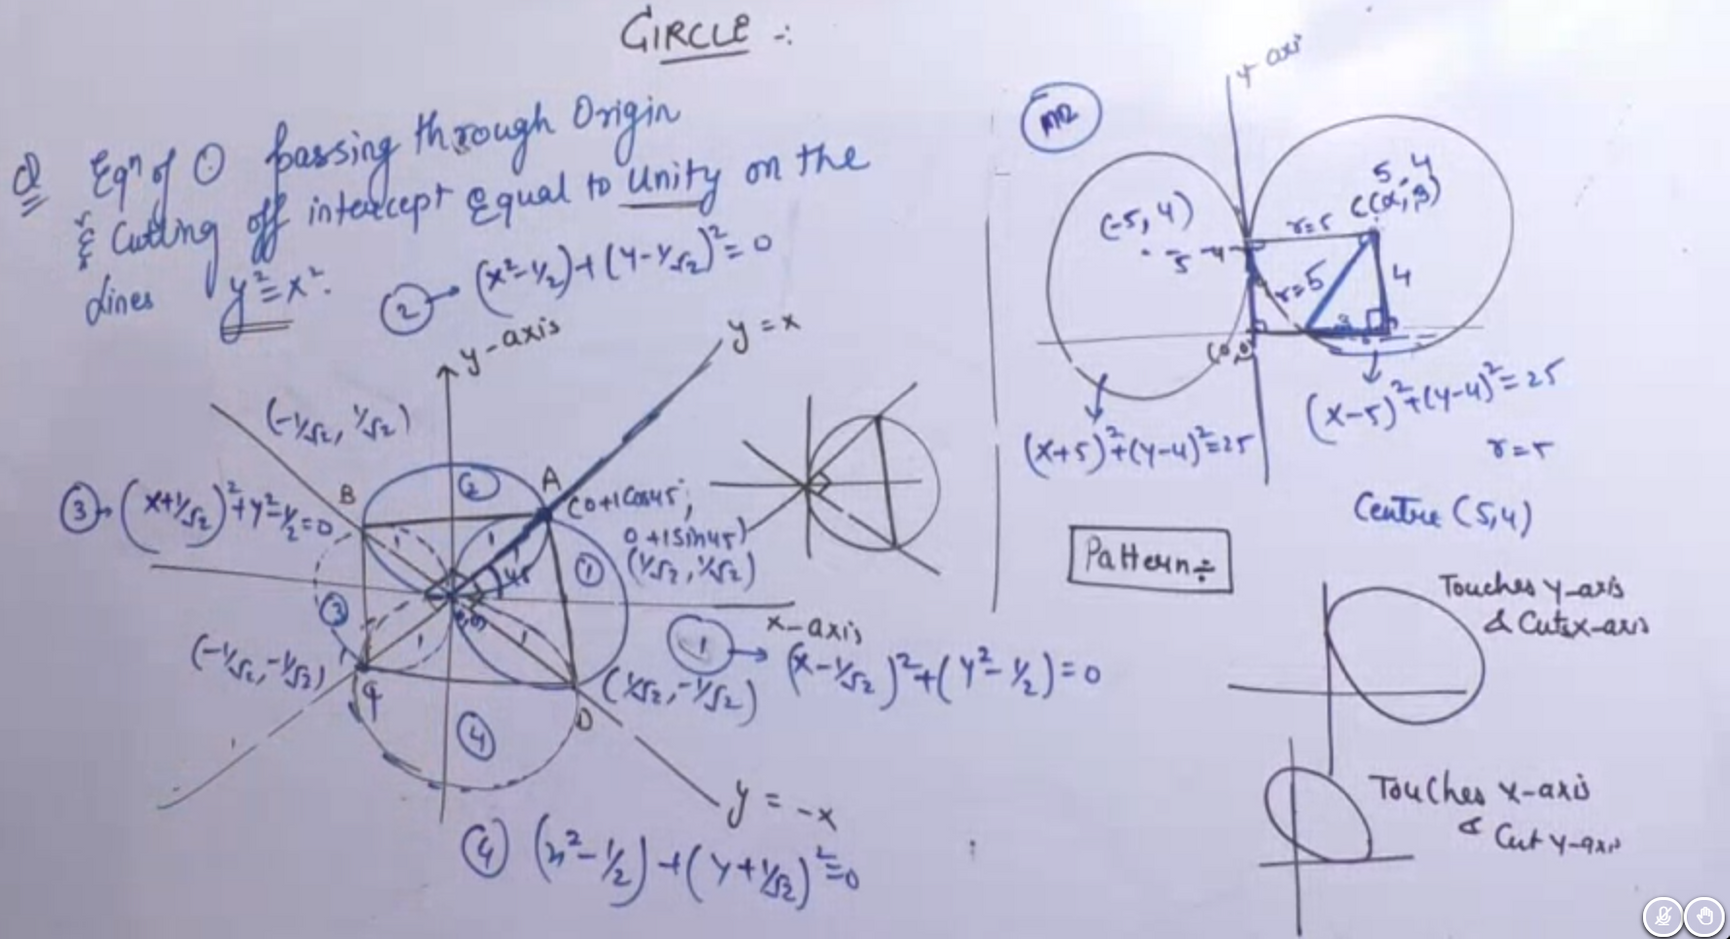 CIRCLE :-
Q Eqⁿ of ⊙ passing through Origin
& Cutting off intercept Equal to Unity on the
Lines y²=x².
② → (x²-1/2)+(y-1/√2)²=0
y-axis
y=x
(-1/√2, 1/√2)
③→ (x+1/√2)²+y²-1/2=0
B
②
A
(0+1Cos45,
0+1Sin45)
(1/√2, 1/√2)
1
1
1
45
①
③
(0,0)
x-axis
1
1
(-1/√2, -1/√2)
(1/√2, -1/√2)
D
① → (x-1/√2)²+(y²-1/2)=0
④
y=-x
④ (x²-1/2)+(y+1/√2)²=0
y-axis
(-5, 4)
5
5, 4
C(α, β)
r=5
r=5
4
4
3
(0,0)
(x+5)²+(y-4)²=25
(x-5)²+(y-4)²=25
r=5
Centre (5,4)
Pattern÷
Touches y-axis
& Cuts x-axis
Touches x-axis
& Cut y-axis